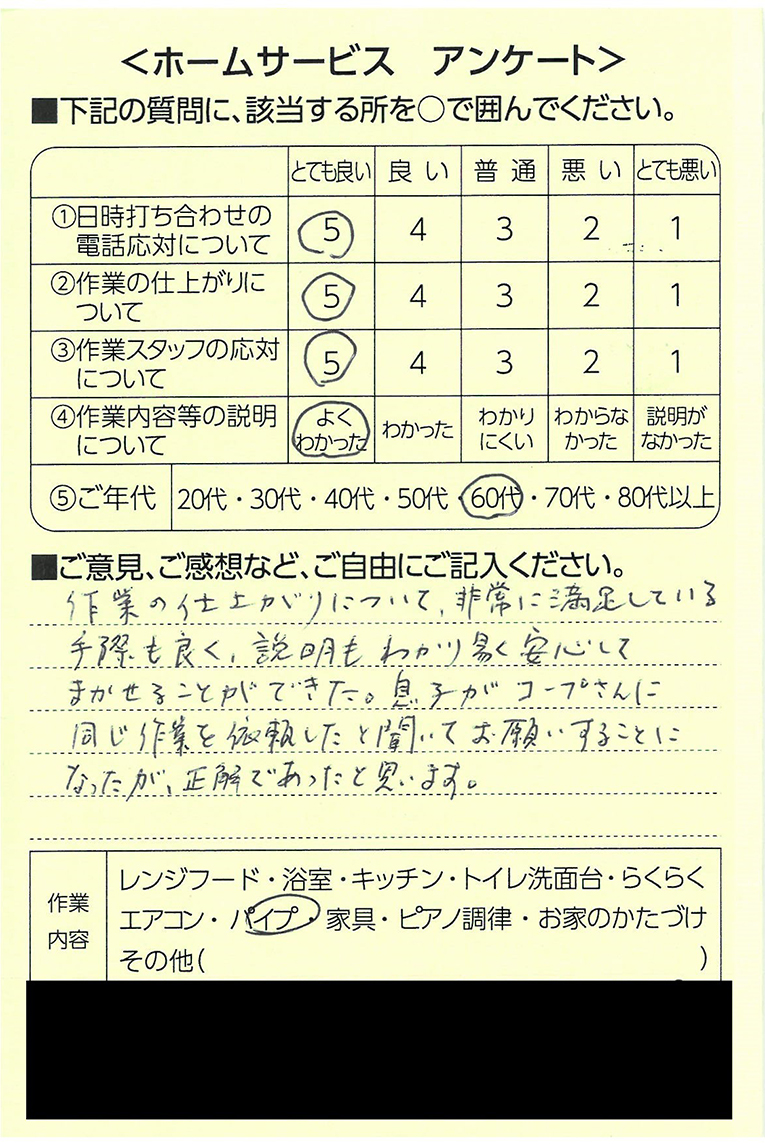 <ホームサービス　アンケート>
■下記の質問に、該当する所を○で囲んでください。
とても良い 良い 普通 悪い とても悪い
①日時打ち合わせの
電話応対について 5 4 3 2 1
②作業の仕上がりに
ついて 5 4 3 2 1
③作業スタッフの応対
について 5 4 3 2 1
④作業内容等の説明
について よく
わかった わかった わかり
にくい わからな
かった 説明が
なかった
⑤ご年代 20代・30代・40代・50代・60代・70代・80代以上
■ご意見、ご感想など、ご自由にご記入ください。
作業の仕上がりについて、非常に満足している
手際も良く、説明もわかり易く安心して
まかせることができた。息子がコープさんに
同じ作業を依頼したと聞いてお願いすることに
なったが、正解であったと思います。
作業
内容
レンジフード・浴室・キッチン・トイレ洗面台・らくらく
エアコン・パイプ・家具・ピアノ調律・お家のかたづけ
その他( )